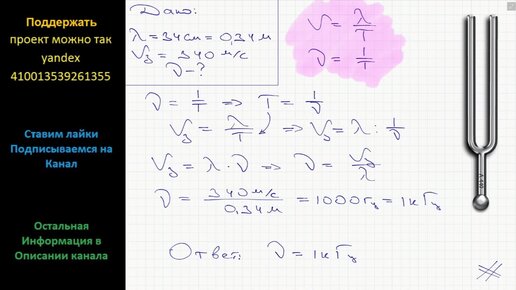 Поддержать
проект можно так
yandex
410013539261355
Ставим лайки
Подписываемся на
Канал
Остальная
Информация в
Описании канала
Дано:
λ = 34см = 0,34 м
Vз = 340 м/с
ν - ?
V = λ/T
ν = 1/T
ν = 1/T => T = 1/ν
Vз = λ/T => Vз = λ : 1/ν
Vз = λ · ν => ν = Vз/λ
ν = 340 м/с / 0,34 м = 1000 Гц = 1 кГц
Ответ: ν = 1 кГц